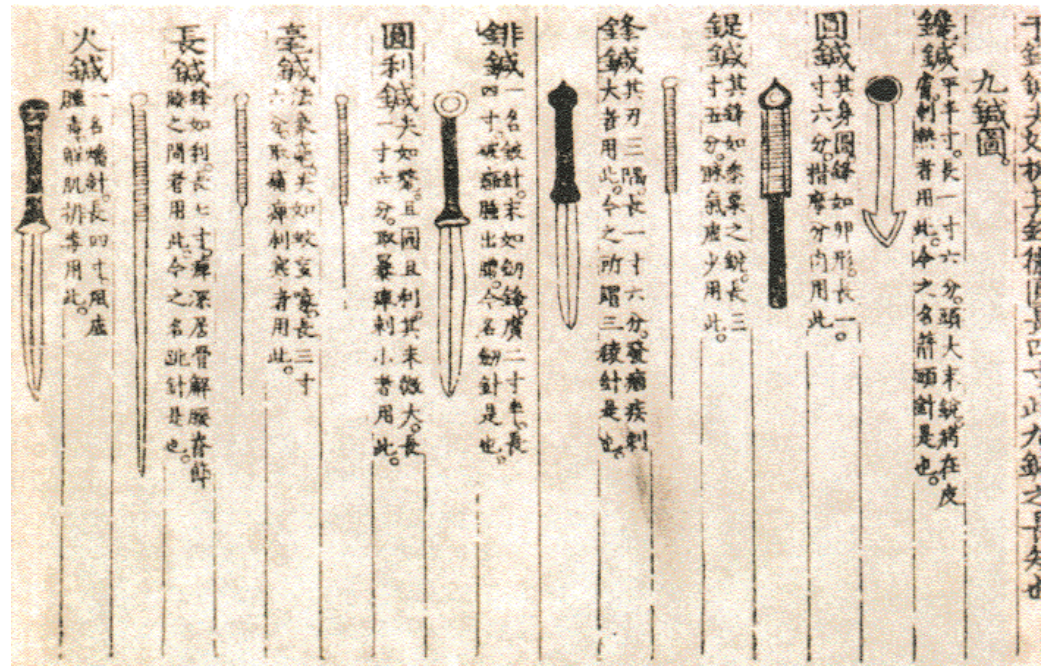 長四寸止九鍼之長短也
九鍼圖。
鑱鍼平半寸。長一寸六分。頭大末銳。病在皮
膚刺熱者用此。今之名箭頭針是也。
圓鍼其身圓鋒如卵形。長一。
寸六分。揩摩分肉用此
鍉鍼其鋒如黍粟之銳。長三
寸五分。脉氣虛少用此。
鋒鍼其刃三隅。長一寸六分。發痼疾刺
大者用此。今之所謂三稜針是也。
鍼一名鈹針。末如劔鋒。廣二寸半。長
四寸。破癰腫出膿。今名劔針是也。
圓利鍼尖如氂。且圓且利。其末微大。長
一寸六分。取暴痹刺小者用此。
毫鍼法象毫。尖如蚊䖟喙。長三寸
六分。取痛痹刺寒者用此。
長鍼鋒如利。長七寸。痹深居骨解腰脊節
腠之間者用此。今之名跳針是也。
火鍼一名燔針。長四寸。風虛
腫毒解肌排毒用此。